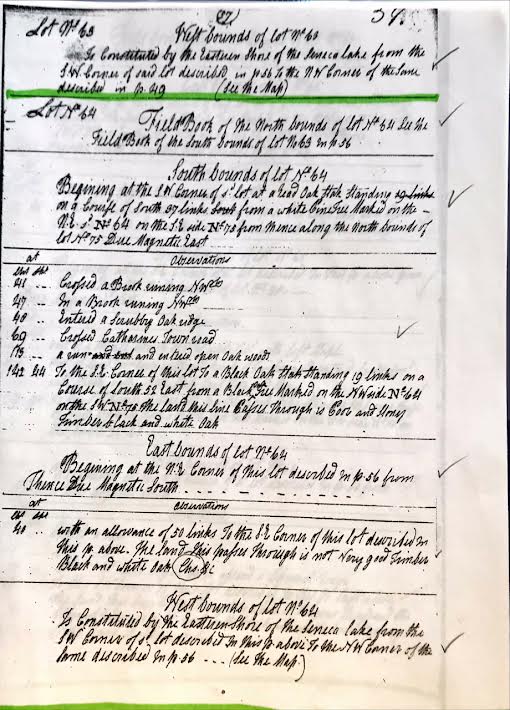 (57)
Lot No 63 West Bounds of lot No 63
Is Constituted by the Eastern Shore of the Seneca lake from the
S.W. Corner of said lot described in p 56 To the N.W Corner of the Same
described in p. 49 (See the Map)
Lot No 64 Field Book of the North bounds of lot No 64 See the
Field Book of the South bounds of lot No 63 in p 56
South bounds of lot No 64
Begining at the S.W Corner of sd lot at a Read Oak Stak Standing 19 links
on a Course of South 37 links from a white Pine Tree Marked on the
N.E. sd No 64 on the S.E side No 75 from thence along the North bounds of
lot No 75 Due Magnetic East
at Observations
41 .. Crossed a Brook runing NW
47 .. In a Brook runing NW
48 .. Entered a Scrubby Oak ridge
69 .. Crossed Catharines Town road
113 .. a run and entered open Oak wood
142 44 To the S.E. Corner of this lot To a Black Oak Stak Standing 19 links on a
Course of South 32 East from a Black Tree Marked on the NW side No 64
on the S.W. No 76 the land this line Passes Through is Poor and Stoney
Timber Black and white Oak
East bounds of lot No 64
Begining at the N.E Corner of this lot described in p. 56 from
Thence Due Magnetic South
at Observations
40 .. with an allowance of 50 links To the S.E Corner of this lot described in
This p. above. The land this passes Through is not Very good Timber
Black and white Oak &c
West bounds of lot No 64
Is Constituted by the Eastern Shore of the Seneca lake from the
S.W Corner of sd lot described in this p above To the N.W Corner of the
Same described in p. 56 ... (See the Map)